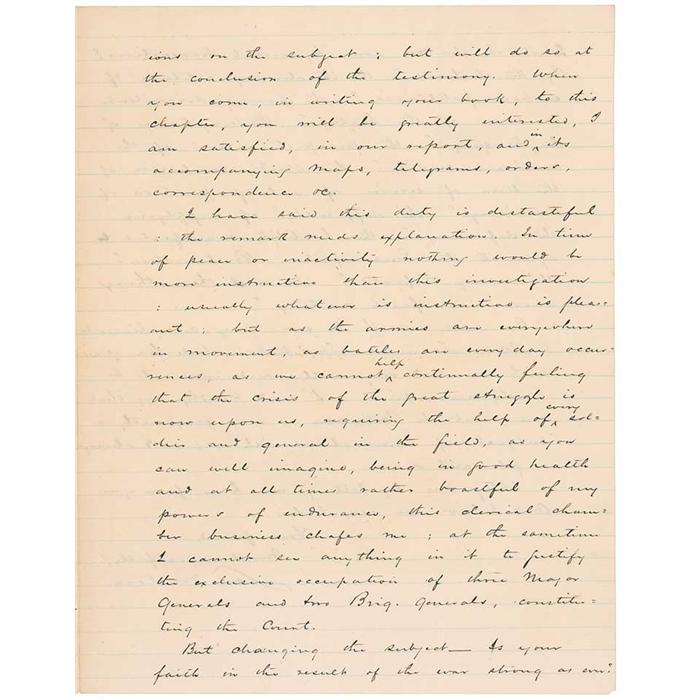 ions on the subject; but will do so at
the conclusion of the testimony. When
you come, in writing your book, to this
chapter, you will be greatly interested, I
am satisfied, in our report, and in its
accompanying maps, telegrams, orders,
correspondence &c.
I have said this duty is distasteful
: the remark needs explanation. In time
of peace or inactivity nothing would be
more instructive than this investigation
: usually whatever is instructive is pleas-
ant; but as the armies are everywhere
in movement, as battles are every day occur-
rences, as we cannot help continually feeling
that the crisis of the great struggle is
now upon us, requiring the help of every sol-
dier and general in the field, as you
can well imagine, being in good health
and at all times rather boastful of my
powers of endurance, this clerical cham-
ber business chafes me; at the sametime
I cannot see anything in it to justify
the exclusive occupation of three Major
Generals and two Brig. Generals, constitu-
ting the Court.
But changing the subject— Is your
faith in the result of the war strong as ever?